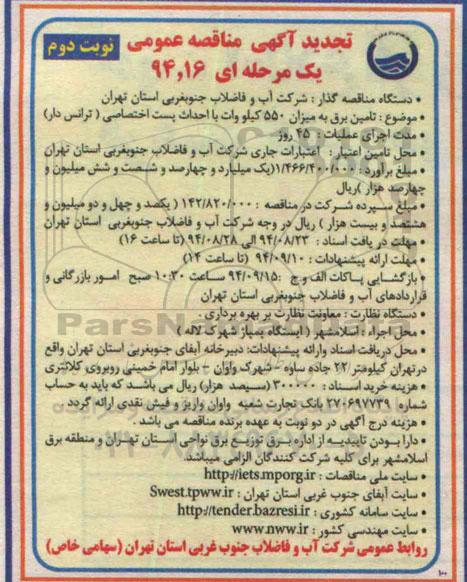 تجدید آگهی مناقصه عمومی
نوبت دوم
یک مرحله ای ۹۴,۱۶
• دستگاه مناقصه گذار : شرکت آب و فاضلاب جنوبغربی استان تهران
• موضوع : تامین برق به میزان ۵۵۰ کیلو وات با احداث پست اختصاصی ( ترانس دار)
• مدت اجرای عملیات : ۴۵ روز
• محل تامین اعتبار : اعتبارات جاری شرکت آب و فاضلاب جنوبغربی استان تهران
• مبلغ برآورد : ۱/۴۶۶/۴۰۰/۰۰۰(یک میلیارد و چهارصد و شصت و شش میلیون و
چهارصد هزار )ریال
• مبلغ سپرده شرکت در مناقصه : ۱۴۲/۸۲۰/۰۰۰ ( یکصد و چهل و دو میلیون و
هشتصد و بیست هزار ) ریال در وجه شرکت آب و فاضلاب جنوبغربی استان تهران
• مهلت دریافت اسناد : ۹۴/۰۸/۲۳ الی ۹۴/۰۸/۲۸ (تا ساعت ۱۶)
• مهلت ارائه پیشنهادات : ۹۴/۰۹/۱۰ (تا ساعت ۱۴)
• بازگشایی پاکات الف و ج : ۹۴/۰۹/۱۵ ساعت ۱۰:۳۰ صبح امور بازرگانی و
قراردادهای آب و فاضلاب جنوبغربی استان تهران
• دستگاه نظارت : معاونت نظارت بر بهره برداری .
• محل اجراء : اسلامشهر ( ایستگاه پمپاژ شهرک لاله )
• محل دریافت اسناد وارائه پیشنهادات: دبیرخانه آبفای جنوبغربی استان تهران واقع
درتهران کیلومتر ۲۲ جاده ساوه – شهرک واوان – بلوار امام خمینی روبروی کلانتری
• هزینه خرید اسناد : ۳۰۰۰۰۰ (سیصد هزار) ریال می باشد که باید به حساب
شماره ۲۷۰۶۹۷۷۳۹ بانک تجارت شعبه واوان واریز و فیش نقدی ارائه گردد
• هزینه درج آگهی در دو نوبت به عهده برنده مناقصه می باشد .
• دارا بودن تاییدیه از اداره برق توزیع برق نواحی استان تهران و منطقه برق
اسلامشهر برای کلیه شرکت کنندگان الزامی میباشد.
• سایت ملی مناقصات : http://iets.mporg.ir
• سایت آبفای جنوب غربی استان تهران : Swest.tpww.ir
• سایت سامانه کشوری : http://tender.bazresi.ir
• سایت مهندسی کشور : www.nww.ir
روابط عمومی شرکت آب و فاضلاب جنوب غربی استان تهران (سهامی خاص)